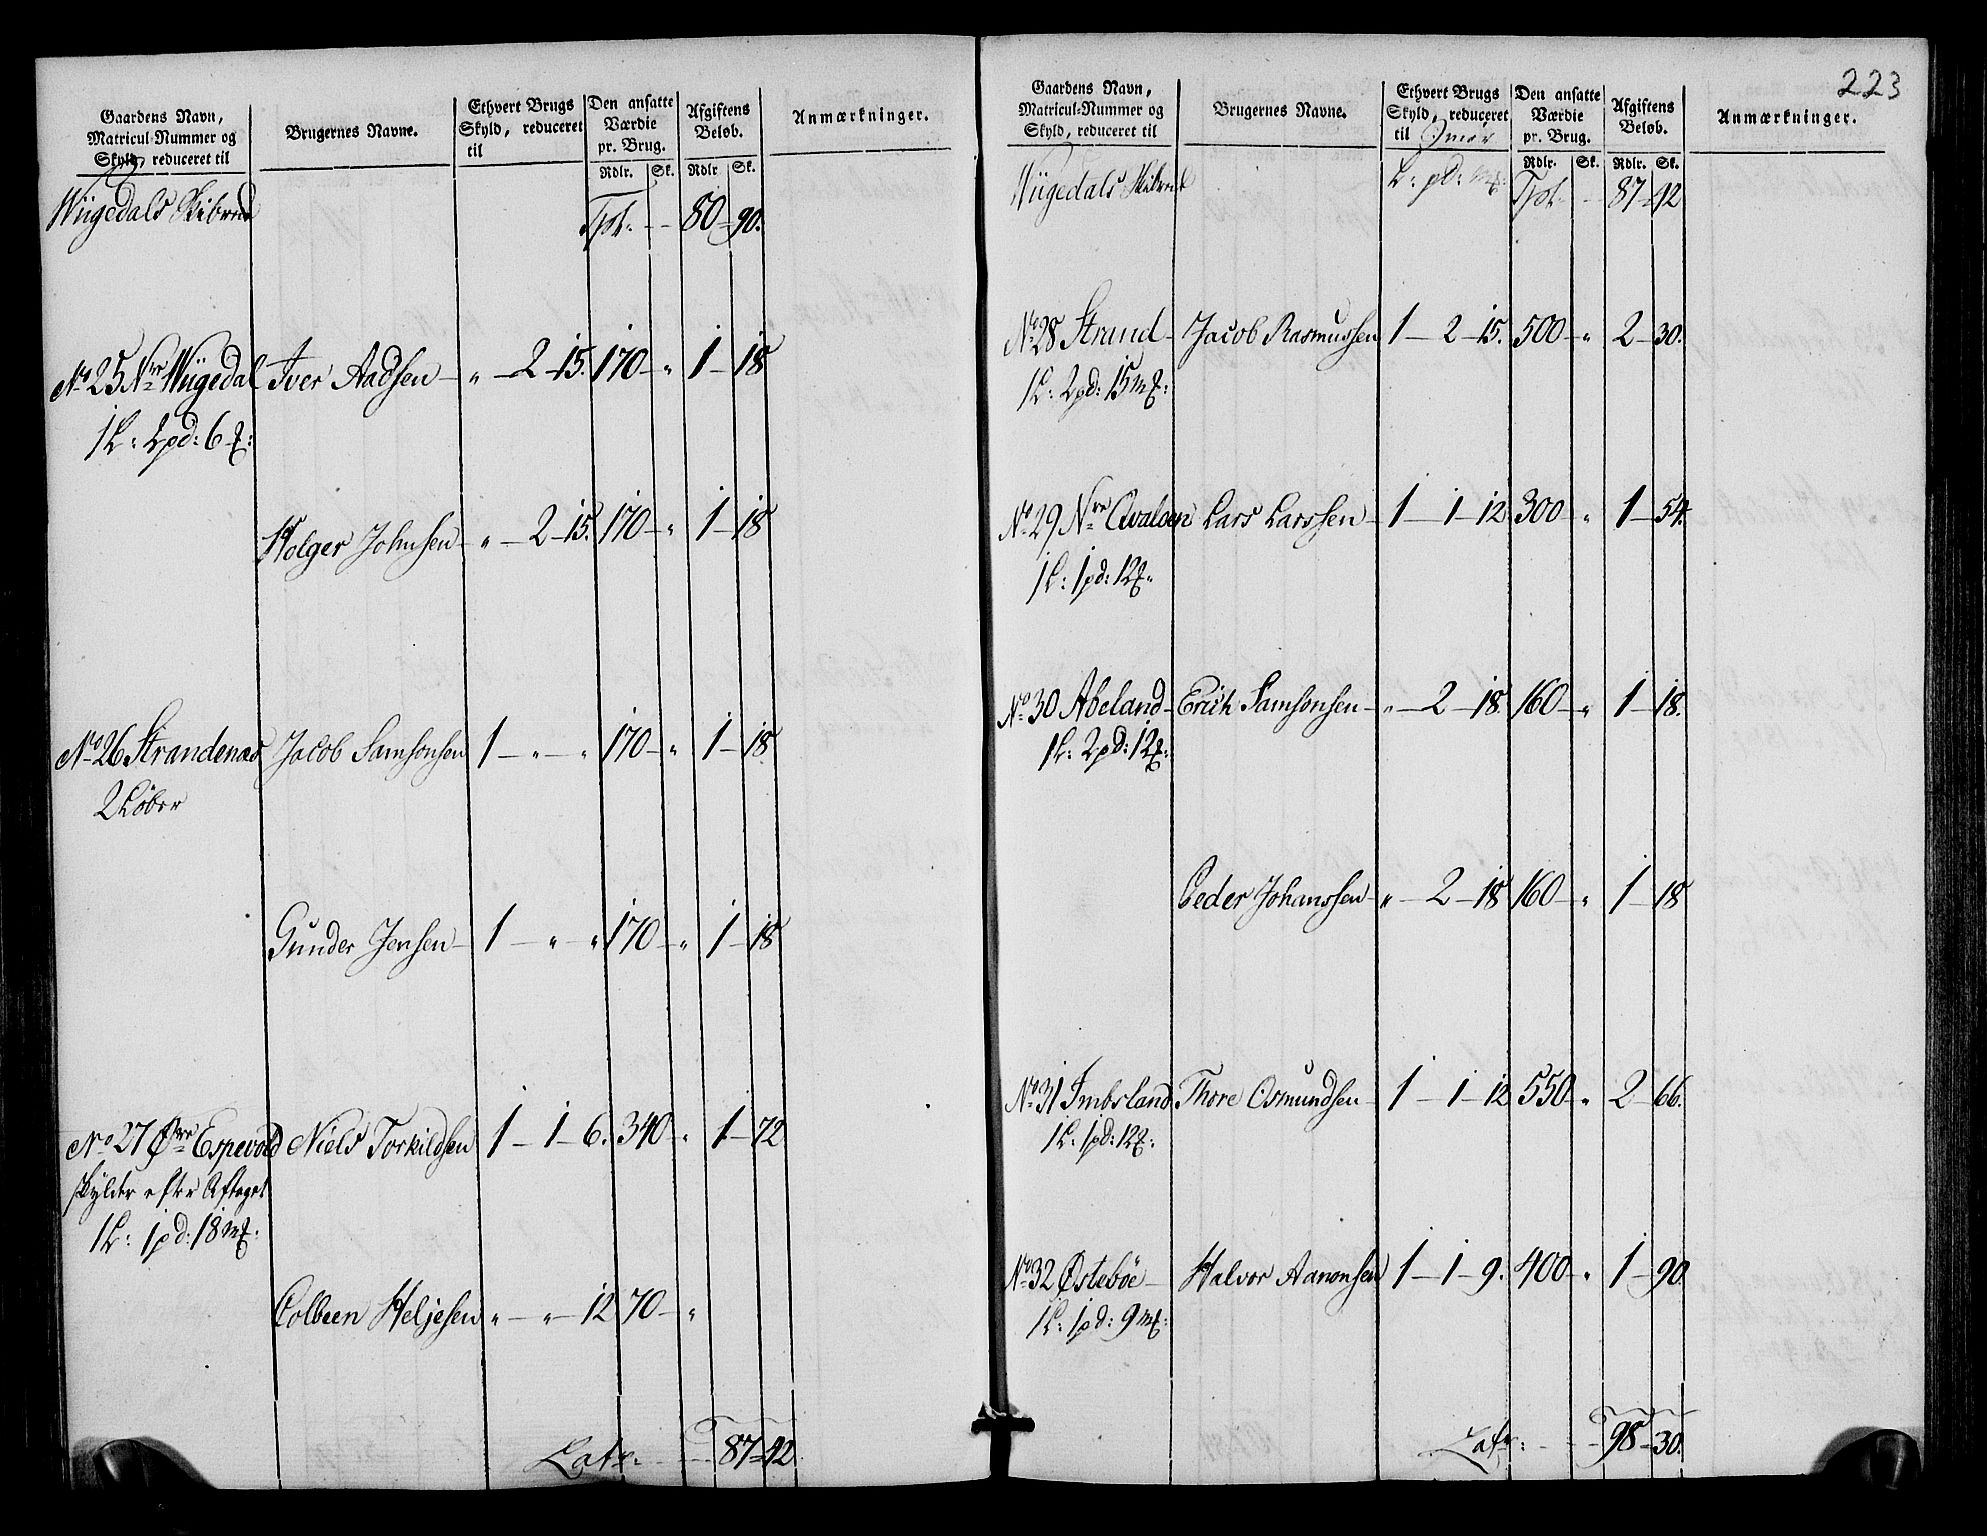 Gaardens Navn,
Matricul-Nummer og
Skyld, reduceret til
Brugernes Navne.
Ethvert Brugs
Skyld, reduceret
til
Den ansatte
Værdie
pr. Brug.
Rdlr. Sk.
Afgiftens
Beløb.
Rdlr Sk.
Anmærkninger.
Wiigedals Skibrede Tpt: - - 80 - 90.
No 25 Nre Wiigedal Iver Aadsen - " - 2 - 15. 170 - " 1 - 18
1 L: 2 pd: 6
Holger Johnsen - " - 2 - 15. 170 - " 1 - 18
No 26 Strandenæs Jacob Samsonsen 1 - " - " 170 - " 1 - 18
2 Løber
Gunder Jensen - 1 - " - " 170 - " 1 - 18
No 27 Øre Espevold Niels Torkildsen 1 - 1 - 6. 340 - " 1 - 72
skylder efter Aftaget
1 L: 1 pd: 18 mk:
Colbeen Heljesen " - " - 12 70 - "
Latr: - - - 87 - 42
223
Gaardens Navn,
Matricul-Nummer og
Skyld, reduceret til
Brugernes Navne.
Ethvert Brugs
Skyld, reduceret
til Smør
L: pd: mk:
Den ansatte
Værdie
pr. Brug.
Rdlr. Sk.
Afgiftens
Beløb.
Rdlr. Sk.
Anmærkninger.
Wiigedals Skibrede Tpt. - - 87 - 42
No 28 Strand - Jacob Rasmussen 1 - 2 - 15. 500 - " 2 - 30.
1 L: 2 pd: 15 mk:
No 29 Nre Qvaloen Lars Larssen - 1 - 1 - 12 300 - " 1 - 54.
1 L: 1 pd: 12
No 30 Abeland - Erich Samsonsen - " - 2 - 18. 160 - " 1 - 18.
1 L: 2 pd: 12
Peder Johanssen - " - 2 - 18 160 - " 1 - 18
No 31 Imbsland Thore Osmundsen - 1 - 1 - 12 550 - " 2 - 66.
1 L: 1 pd: 12
No 32 Østebøe - Halvor Aanonsen 1 - 1 - 9. 400 - " 1 - 90
1 L: 1 pd: 9 mk:
Latr: - - - 98 - 30.